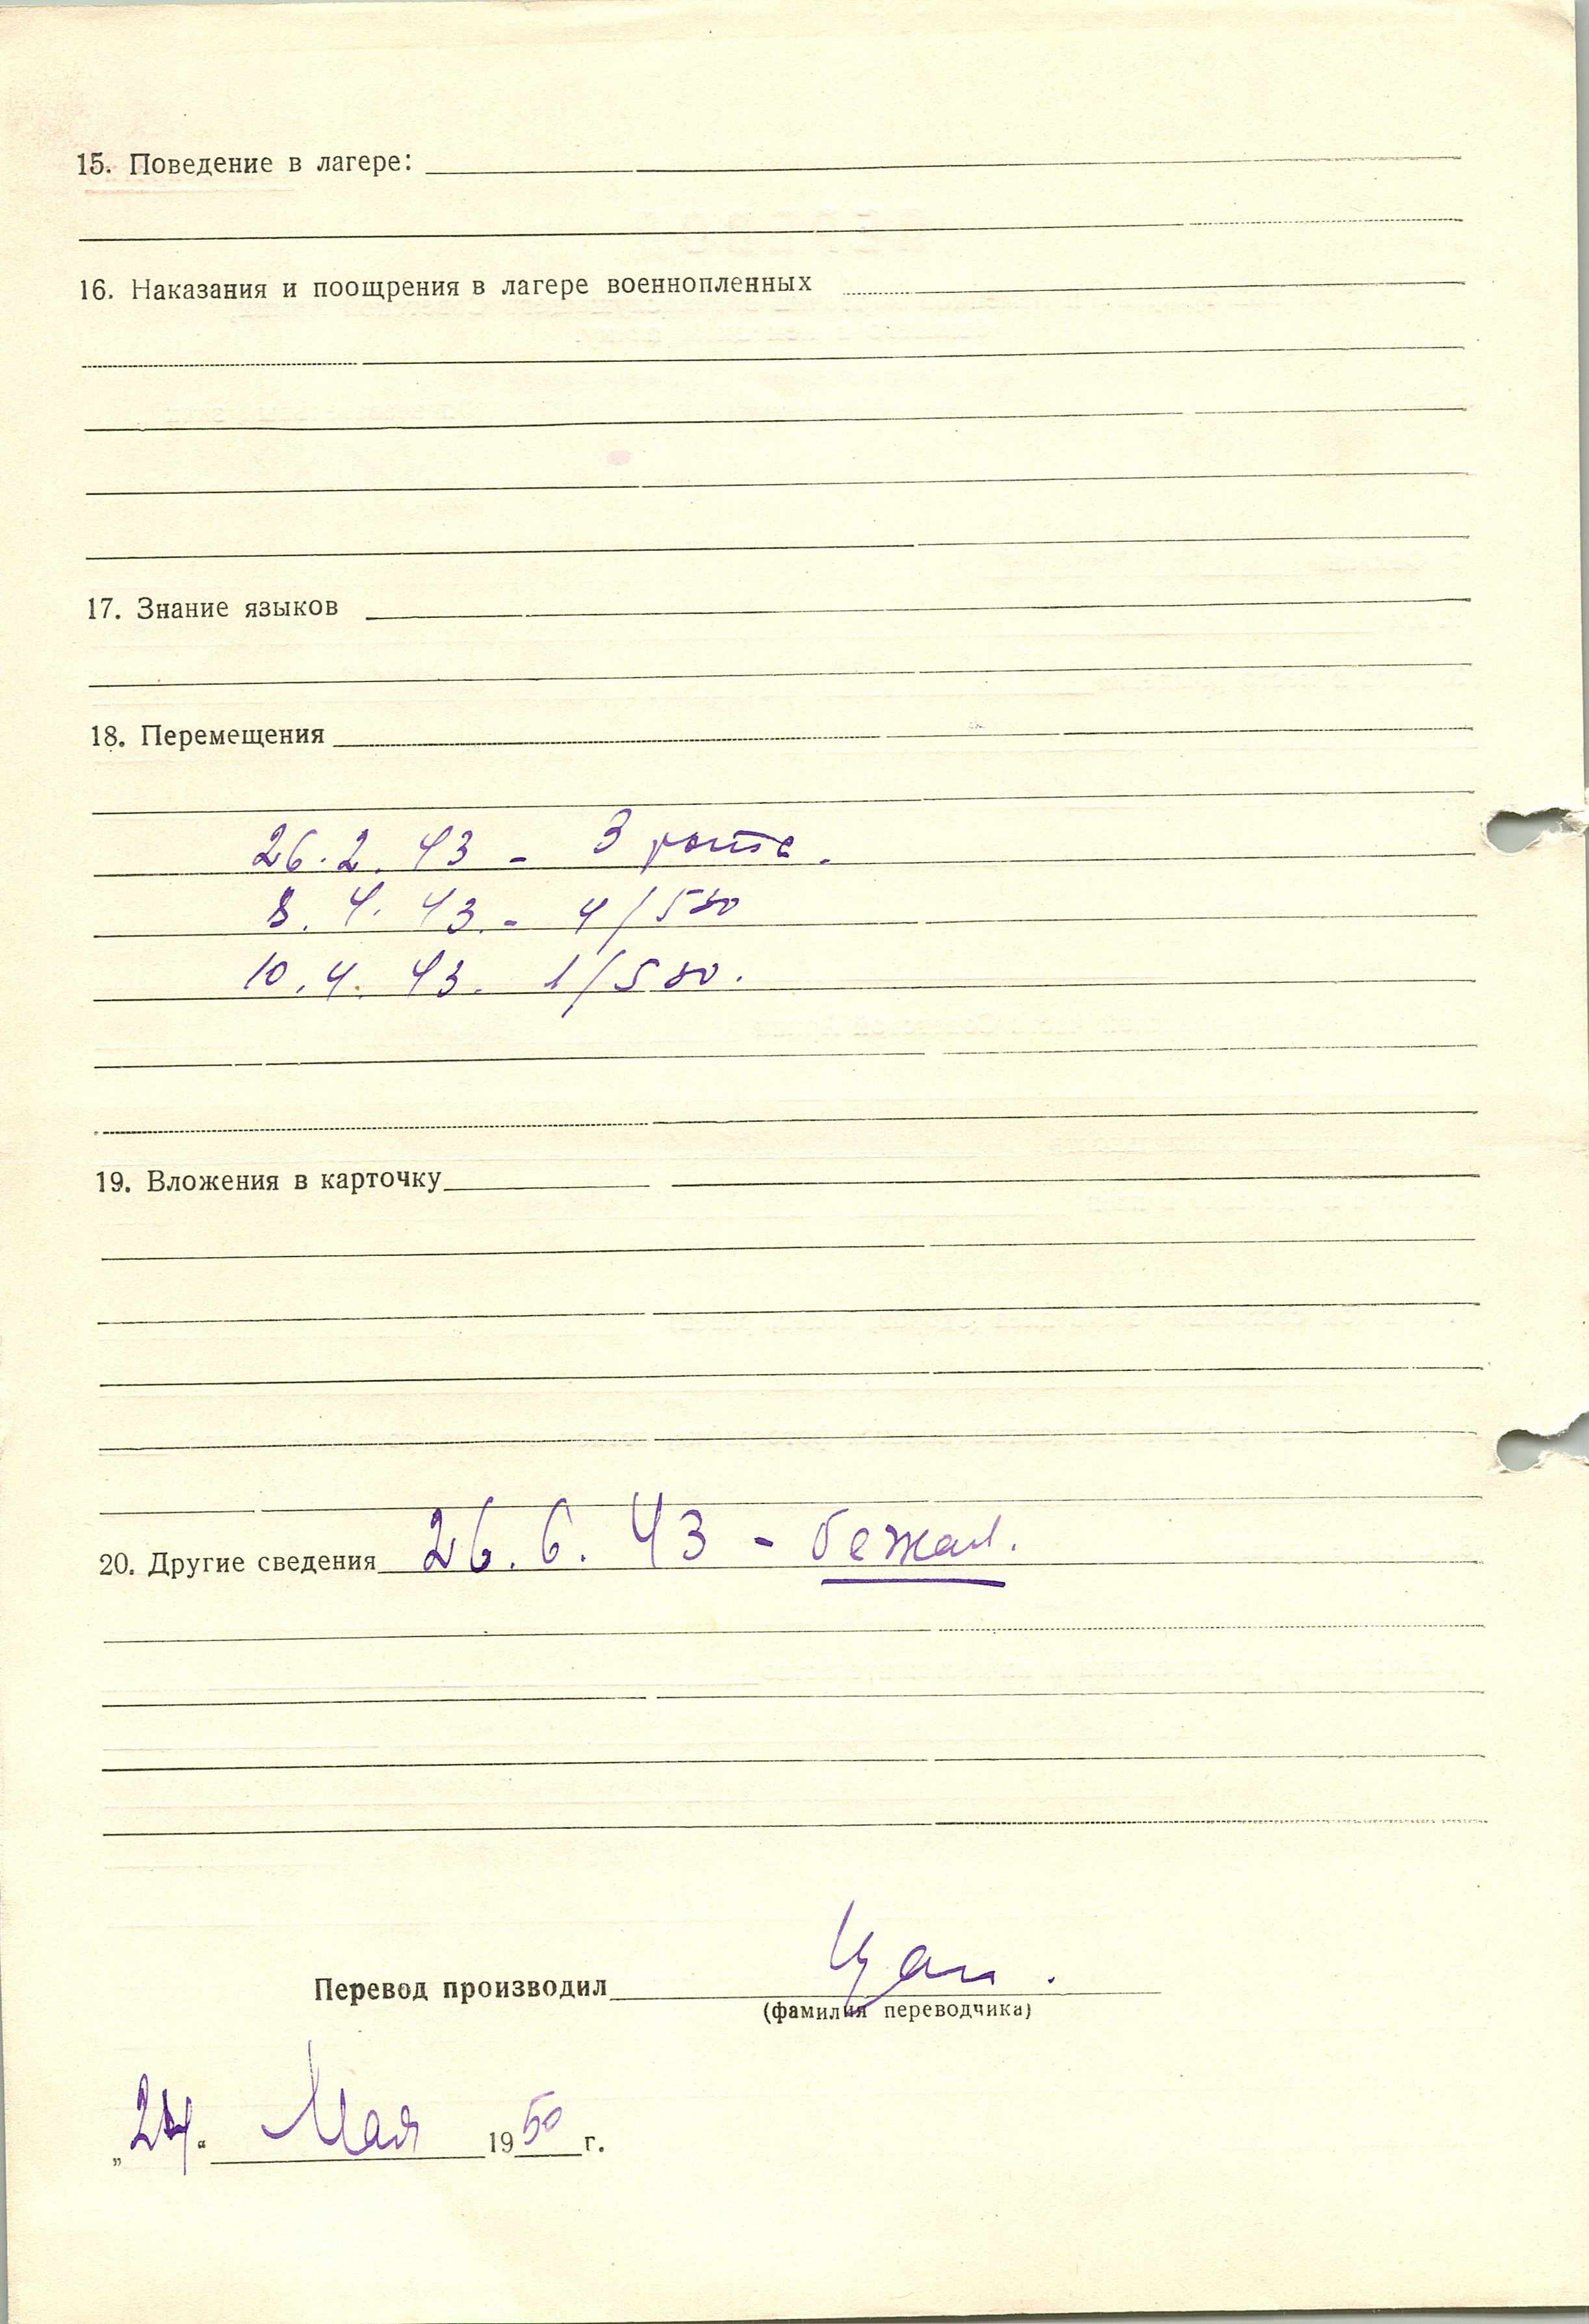 15. Поведение в лагере:
16. Наказания и поощрения в лагере военнопленных
17. Знание языков
18. Перемещения
26. 2. 43 - 3 рота.
8. 4. 43. - 4/580
10. 4. 43. 1/580.
19. Вложения в карточку
20. Другие сведения 26. 6. 43 - бежал.
Перевод производил
(фамилия переводчика)
„24“ Мая 1950 г.